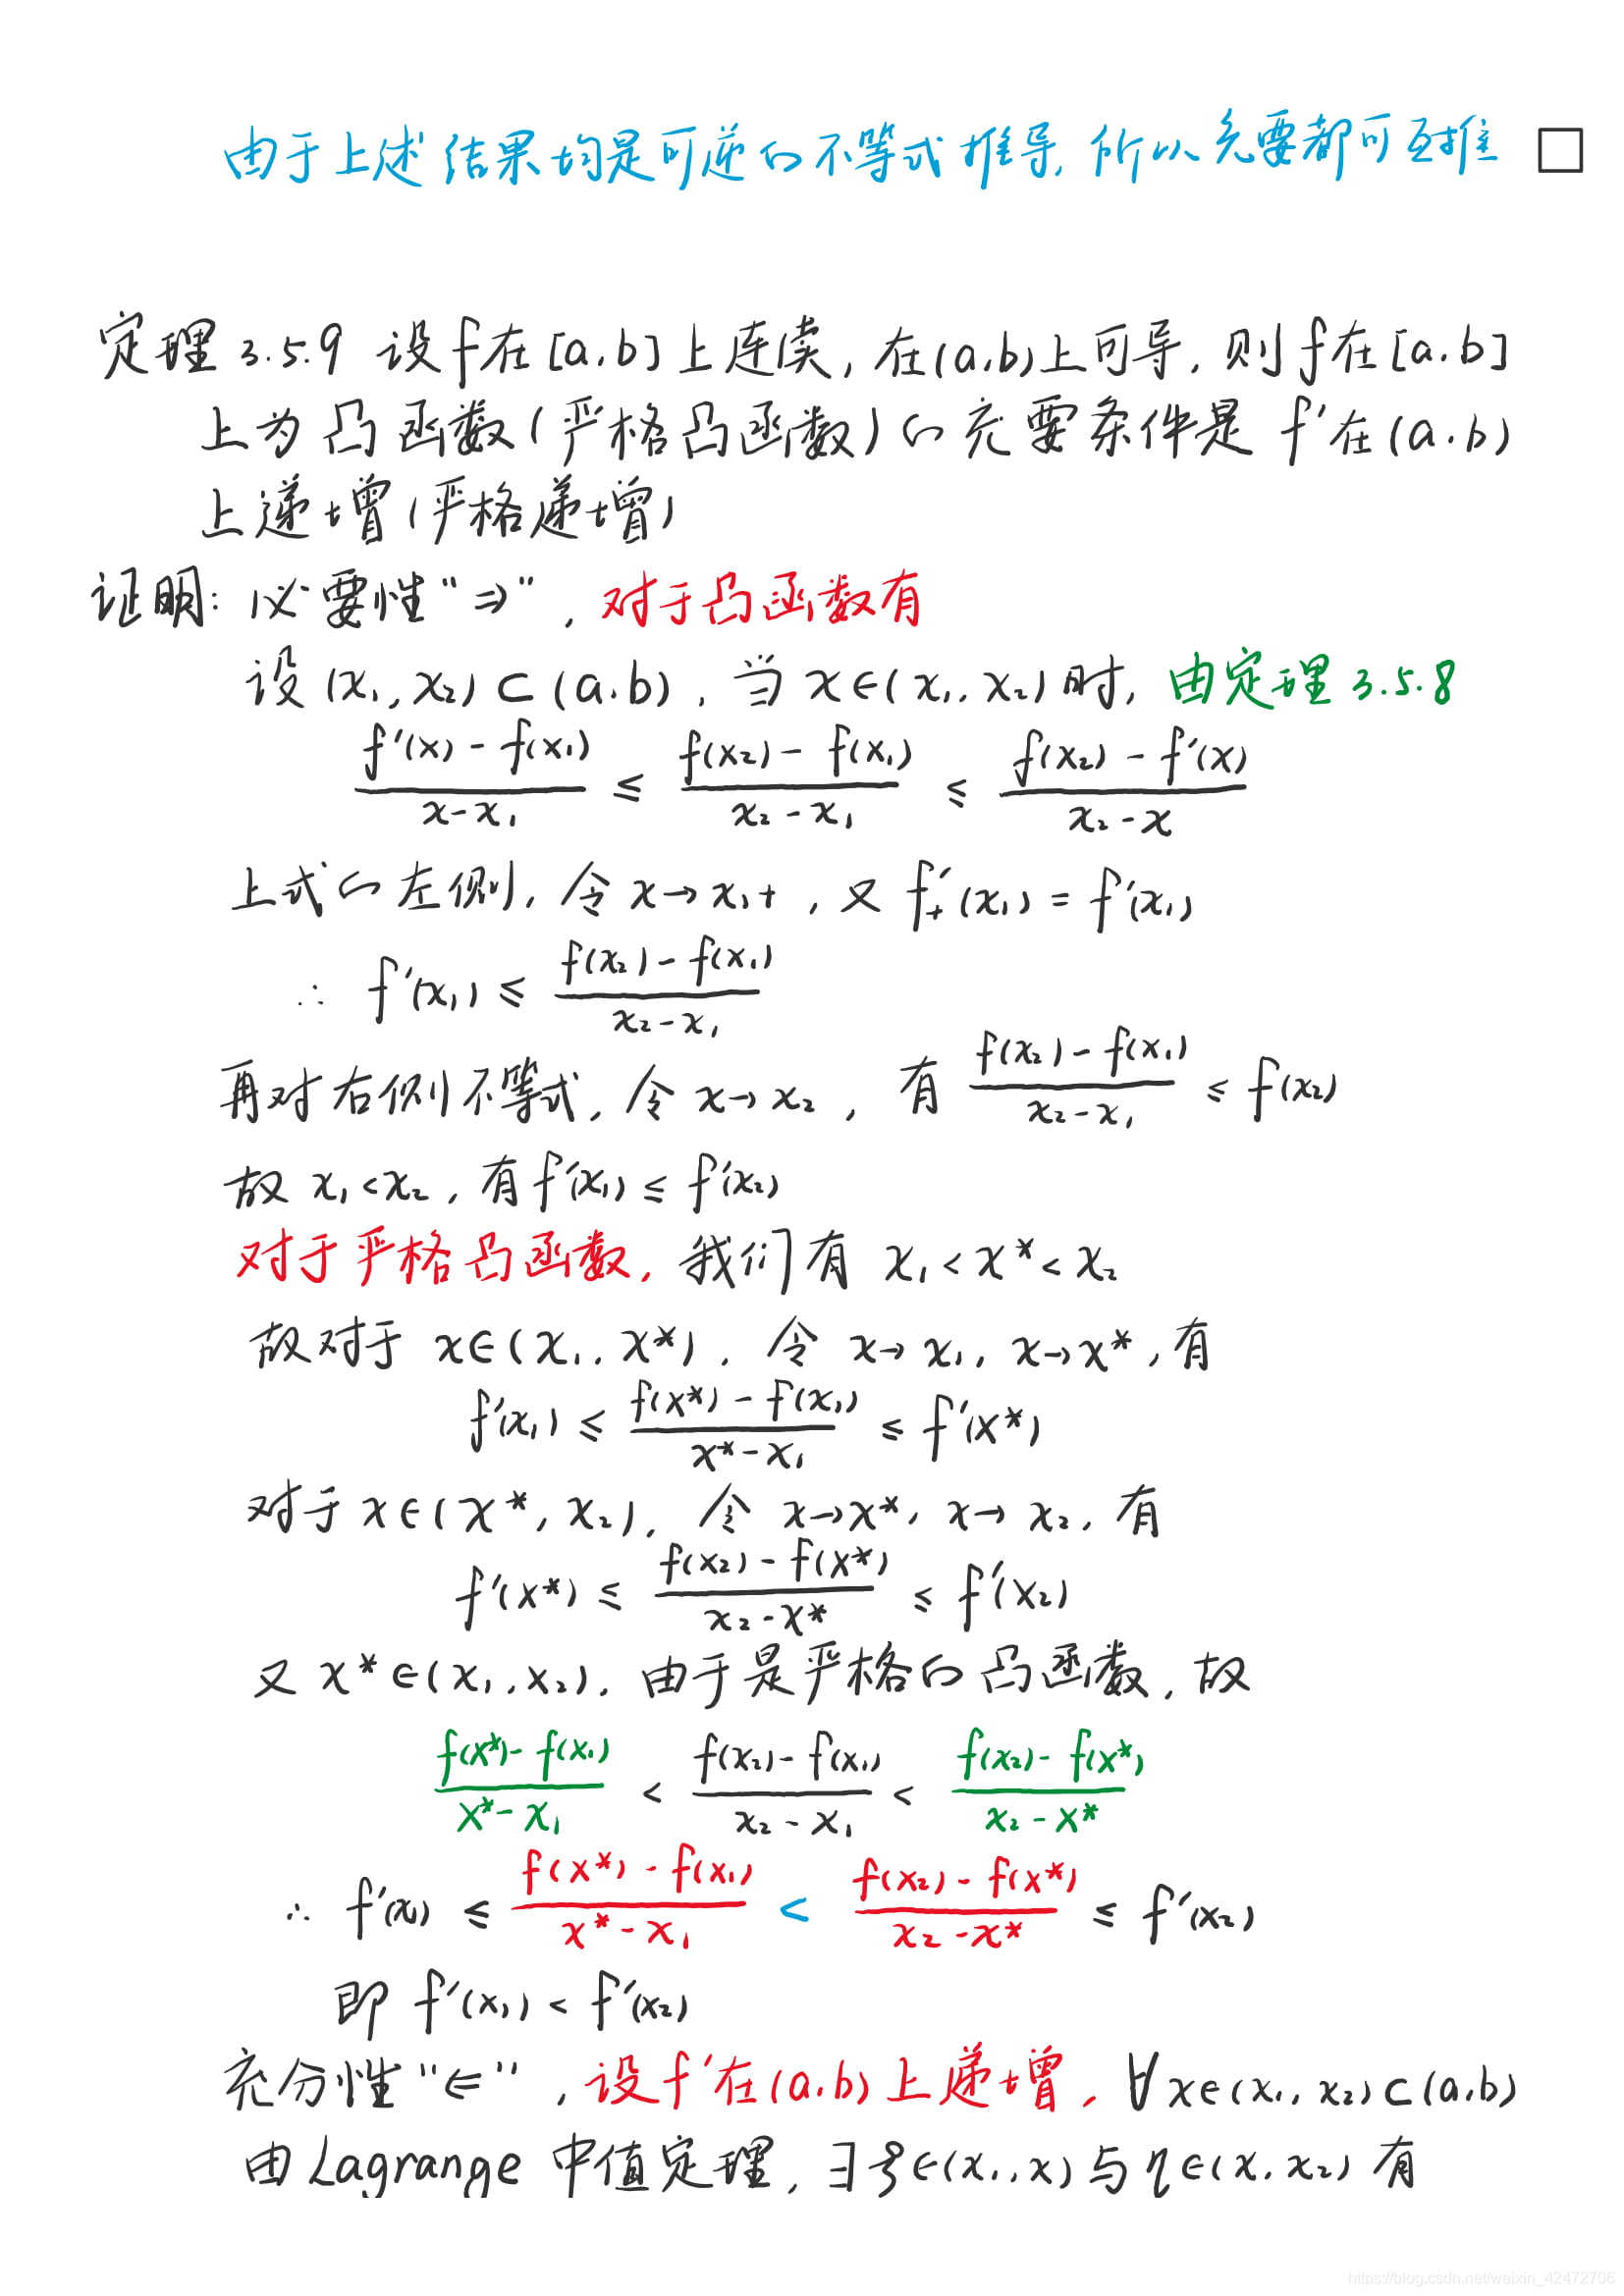 由于上述结果均是可逆的不等式推导,所以充要都可互推 □
定理 3.5.9 设f在[a.b]上连续,在(a.b)上可导,则f在[a.b]
上为凸函数(严格凸函数)的充要条件是 f'在(a.b)
上递增(严格递增)
证明: 必要性"⇒",对于凸函数有
设(x₁,x₂)⊂(a.b),当x∈(x₁,x₂)时,由定理3.5.8
(f'(x)-f(x₁))/(x-x₁) ≤ (f(x₂)-f(x₁))/(x₂-x₁) ≤ (f(x₂)-f'(x))/(x₂-x)
上式的左侧,令x→x₁+,又f'₊(x₁)=f'(x₁)
∴ f'(x₁) ≤ (f(x₂)-f(x₁))/(x₂-x₁)
再对右侧不等式,令x→x₂,有 (f(x₂)-f(x₁))/(x₂-x₁) ≤ f(x₂)
故x₁<x₂,有f'(x₁)≤f'(x₂)
对于严格凸函数,我们有 x₁<x*<x₂
故对于 x∈(x₁,x*),令 x→x₁,x→x*,有
f'(x₁) ≤ (f(x*)-f(x₁))/(x*-x₁) ≤ f'(x*)
对于x∈(x*,x₂),令 x→x*,x→x₂,有
f'(x*) ≤ (f(x₂)-f(x*))/(x₂-x*) ≤ f'(x₂)
又 x*∈(x₁,x₂),由于是严格的凸函数,故
(f(x*)-f(x₁))/(x*-x₁) < (f(x₂)-f(x₁))/(x₂-x₁) < (f(x₂)-f(x*))/(x₂-x*)
∴ f'(x₁) ≤ (f(x*)-f(x₁))/(x*-x₁) < (f(x₂)-f(x*))/(x₂-x*) ≤ f'(x₂)
即 f'(x₁)<f'(x₂)
充分性"⇐",设f'在(a.b)上递增,∀x∈(x₁,x₂)⊂(a.b)
由Lagrange 中值定理,∃ξ∈(x₁,x)与η∈(x,x₂)有
https://blog.csdn.net/weixin_42472706